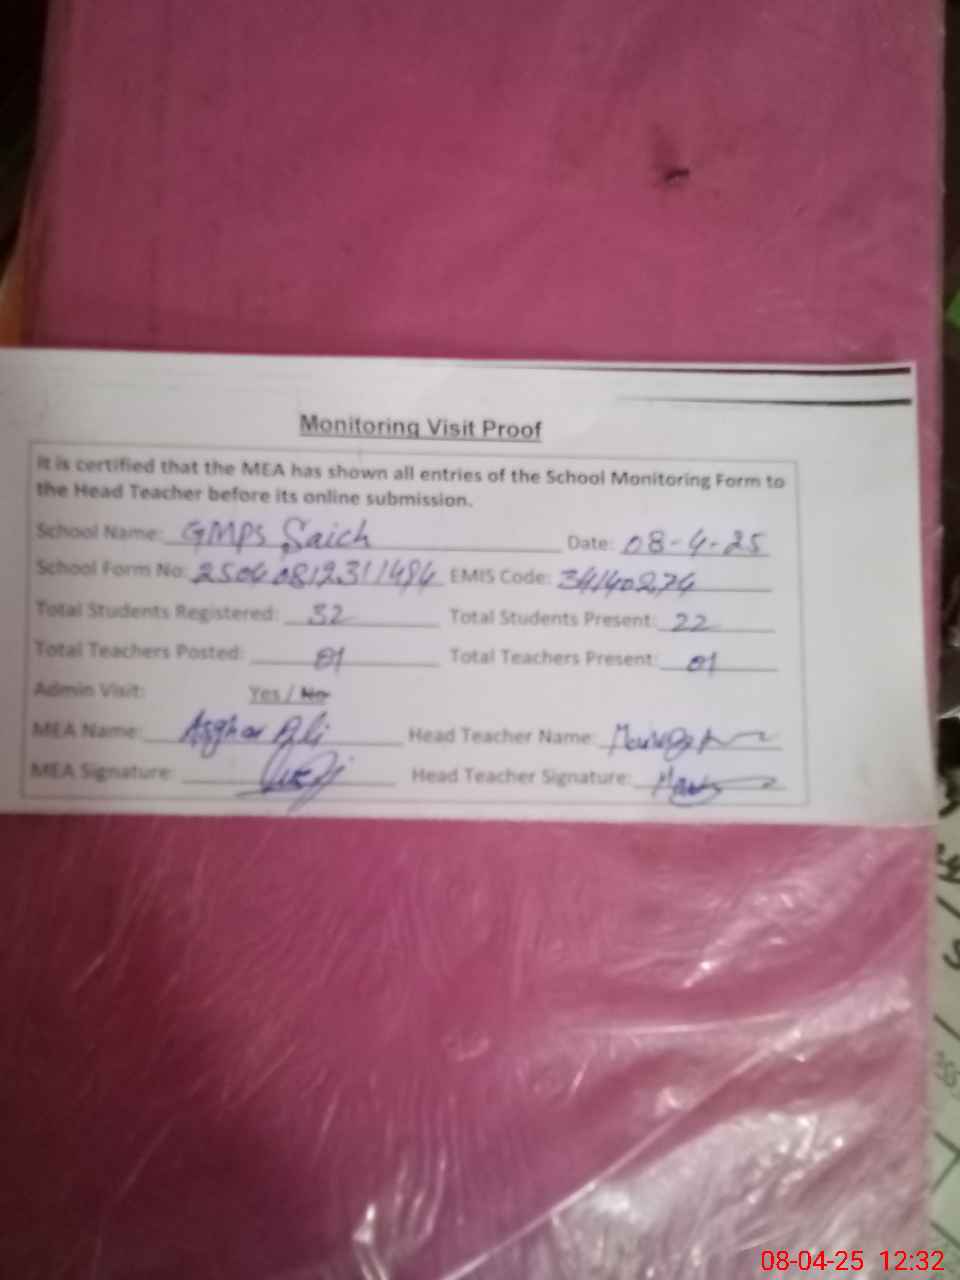 Monitoring Visit Proof
It is certified that the MEA has shown all entries of the School Monitoring Form to
the Head Teacher before its online submission.
School Name: GMPS Saich Date: 08-4-25
School Form No: EMIS Code: 34140274
Total Students Registered: 32 Total Students Present: 22
Total Teachers Posted: 01 Total Teachers Present: 01
Admin Visit: Yes / No
MEA Name: Asghar Ali Head Teacher Name:
MEA Signature: Head Teacher Signature:
08-04-25 12:32